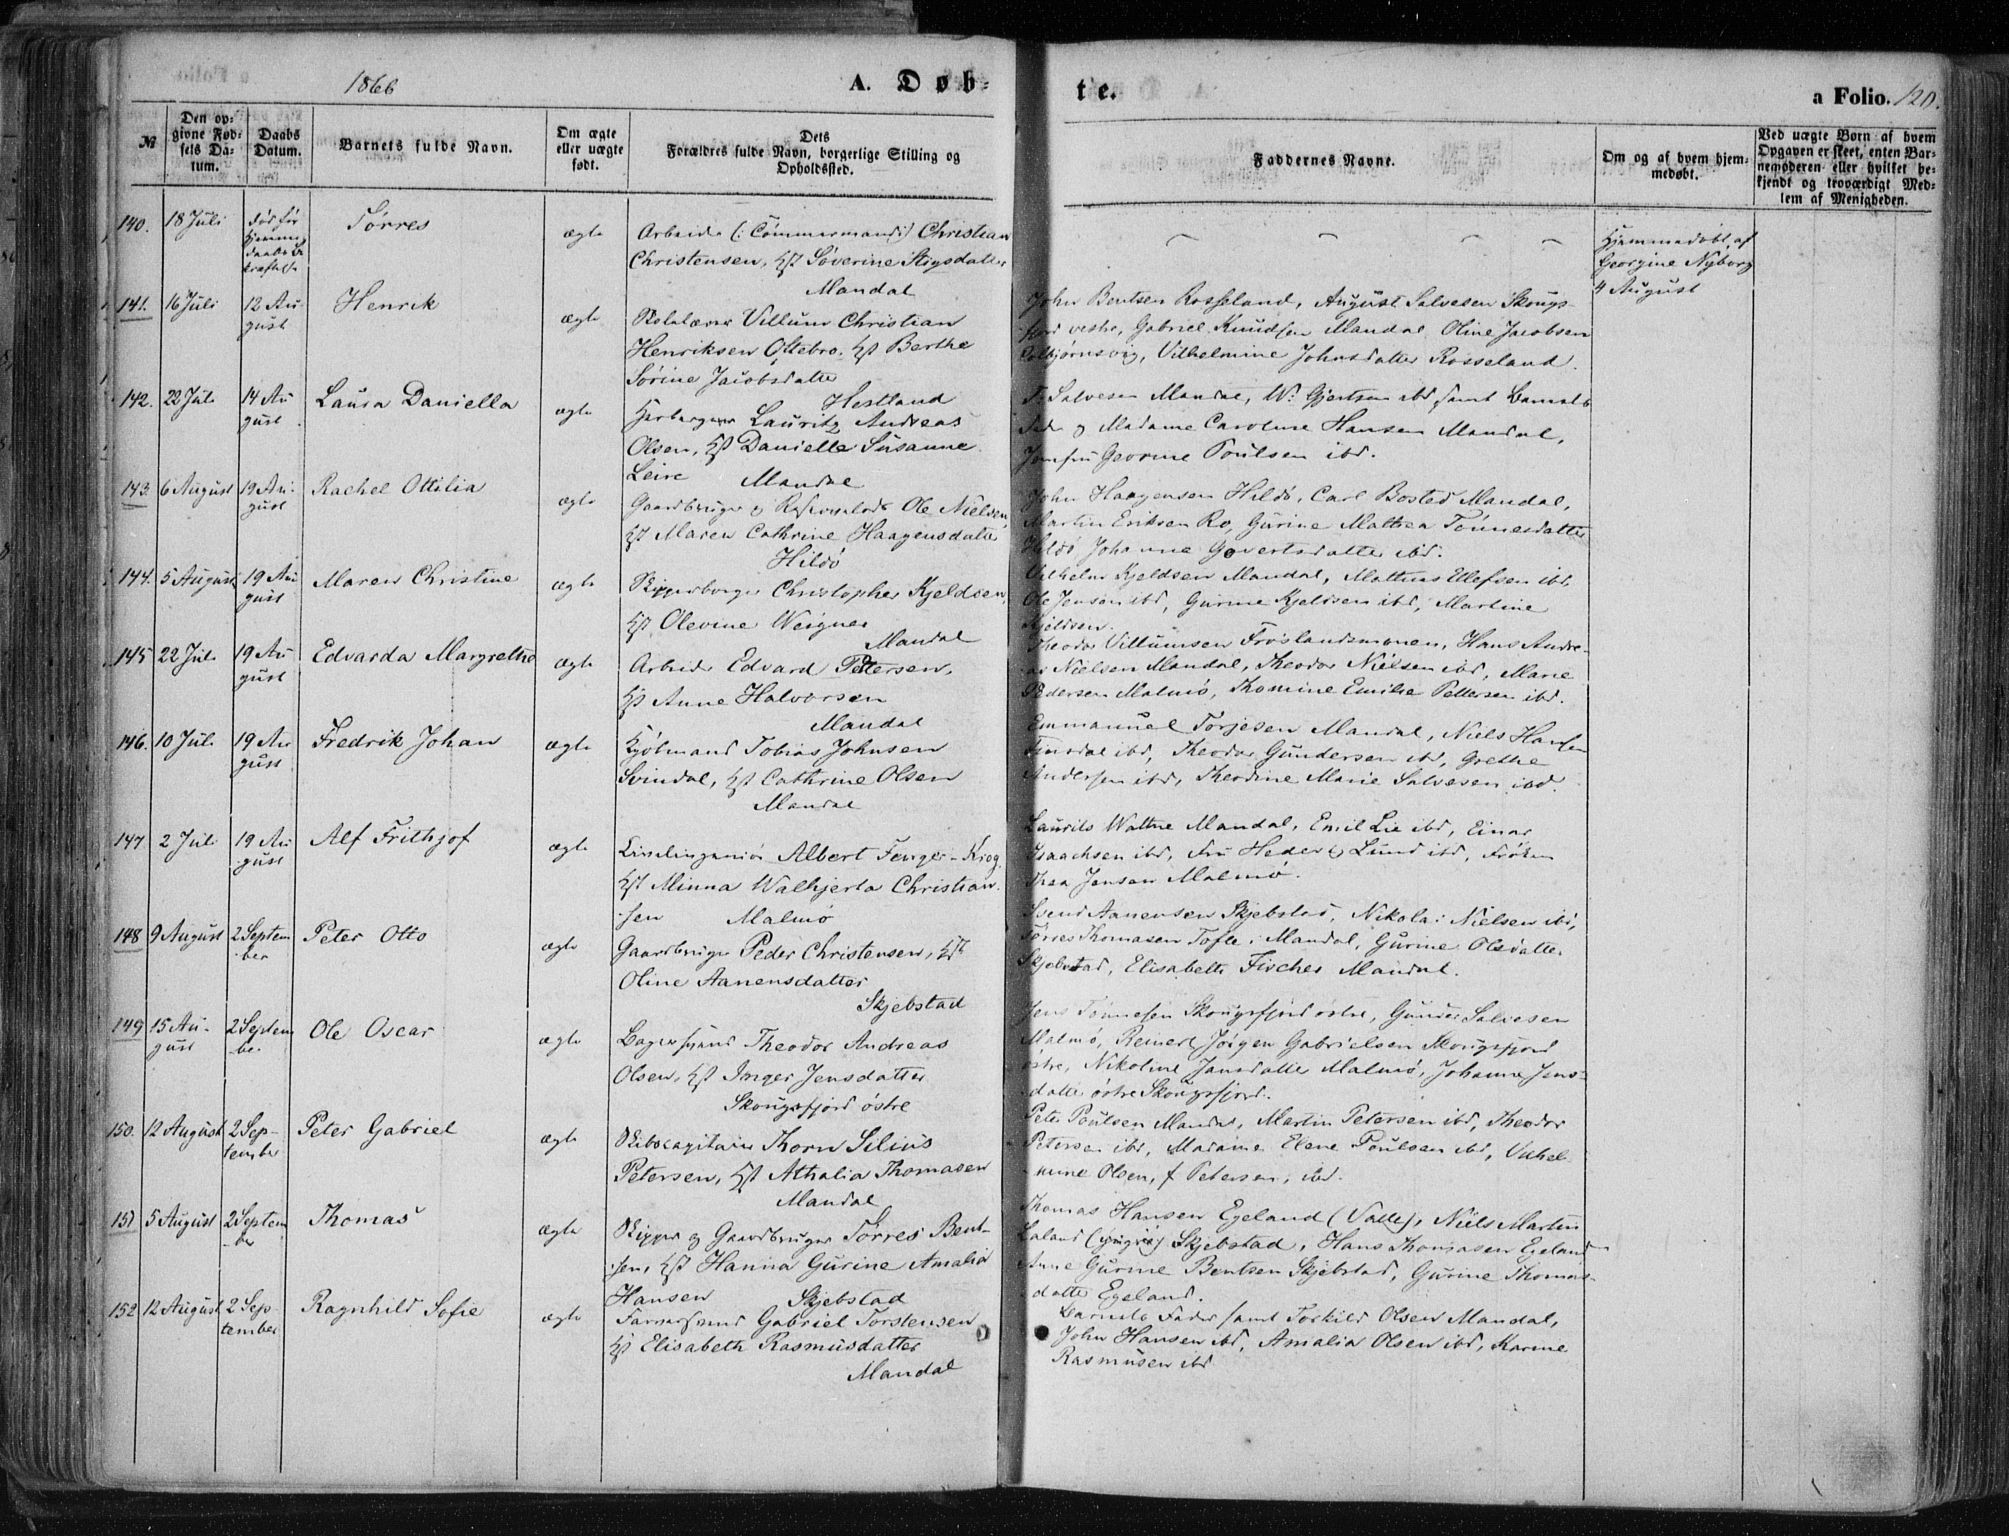 1866
A. Døb-
te.
a Folio. 120.
№
Den op-
givne Fød-
sels Da-
tum.
Daabs
Datum.
Barnets fulde Navn.
Om ægte
eller uægte
født.
Dets
Forældres fulde Navn, borgerlige Stilling og
Opholdssted.
Faddernes Navne.
Om og af hvem hjem-
medøbt.
Ved uægte Børn af hvem
Opgaven er skeet, enten Bar-
nemoderen eller hvilket be-
kjendt og troværdigt Med-
lem af Menigheden.
140. 18 Juli død før
Hjemme
daabs
Tørres
ægte
Arbeider Christian
Christensen, Hst Søverine Stigsdatter
Mandal
Hjemmedøbt af
Georgine Nyborg
4 August
141. 16 Juli 12 Au
gust
Henrik
ægte
Skolelærer Villum Christian
Henriksen Oftebro, Hst Berthe
Sørine Jacobsdatter
Hestland
John Bentsen Rosseland, August Salvesen Skougs-
fjord vestre, Gabriel Knudsen Mandal Oline Jacobsen
Kolbjørnsvig, Vilhelmine Johnsdatter Rosseland.
142. 22 Juli 14 Au
gust
Laura Daniella
ægte
Lauritz Andreas
Olsen, Hst Danielle Susanne
Leire Mandal
T. Salvesen Mandal, W. Gjertsen ibd samt Barnets
Fader og Madame Caroline Hansen Mandal,
Jomfru Georine Poulsen ibd.
143. 6 August 19 Au-
gust
Rachel Ottilia
ægte
Gaardbruger og Ole Nielsen
Hst Maren Cathrine Haagensdatter
Hildø
John Haagensen Hildø, Carl Bosted Mandal,
Martin Eriksen Ro, Gurine Mathea Tønnesdatter
Hildø, Johanne Govertsdatter ibd.
144. 5 August 19 Au
gust
Maren Christine
ægte
Skipperborger Christopher Kjeldsen,
Hst Olevine Weigner
Mandal
Vilhelm Kjeldsen Mandal, Mathias Ellefsen ibd,
Ole Jensen ibd, Gurine Kjeldsen ibd, Martine
Kjeldsen.
145 22 Juli 19 Au
gust
Edvarda Margrethe
ægte
Arbeider Edvard Petersen,
Hst Anne Halvorsen
Mandal
Theodor Villumsen Frøslandsmonen, Hans Andre-
as Nielsen Mandal, Theodor Nielsen ibd, Marie
Pedersen Malmø, Thomine Emilie Pettersen ibd.
146. 10 Juli 19 Au
gust
Fredrik Johan
ægte
Kjøbmand Tobias Johnsen
Svindal, Hst Cathrine Olsen
Mandal
Emmanuel Torjesen Mandal, Niels Hansen
ibd, Theodor Gundersen ibd, Grethe
Andersen ibd, Theodine Marie Salvesen ibd.
147 2 Juli 19 Au
gust
Alf Frithjof
ægte
Albert Fenger-Krog
Hst Minna Walhjerta Christian-
sen Malmø
Laurits Wattne Mandal, Emil Lie ibd, Einar
Isaachsen ibd, Fru Lund ibd, Frøken
Thea Jensen Malmø.
148 9 August 2 Septem
ber
Peter Otto
ægte
Gaardbruger Peder Christensen, Hst
Oline Aanensdatter
Skjebstad
Svend Aanensen Skjebstad, Nikolai Nielsen ibd,
Tørres Thomasen Tofte i Mandal, Gurine Olsdatter
Skjebstad, Elisabeth Fischer Mandal.
149 15 Au-
gust
2 Septem
ber
Ole Oscar
ægte
Bagersvend Theodor Andreas
Olsen, Hst Inger Jensdatter
Skougsfjord østre
Jens Tønnesen Skougsfjord østre, Gunder Salvesen
Malmø, Reinert Jørgen Gabrielsen Skougsfjord
østre, Nikoline Jansdatter Malmø, Johanne Jens-
datter østre Skougsfjord.
150. 12 August 2 Sep-
tember
Peter Gabriel
ægte
Skibscapitain Thorn Silius
Petersen, Hst Athalia Thomasen
Mandal
Peter Poulsen Mandal, Martin Petersen ibd, Theodor
Petersen ibd, Madame Elene Poulsen ibd, Vilhel
mine Olsen, f Petersen, ibd.
151 5 August 2 Septem
ber
Thomas
ægte
Skipper og Gaardbruger Tørres Bent-
sen, Hst Hanna Gurine Amalia
Hansen Skjebstad
Thomas Hansen Egeland (Valle), Niels Martin
Laland (yngre) Skjebstad, Hans Thomasen Egeland
Anne Gurine Bentsen Skjebstad, Gurine Thomas-
datter Egeland.
152 12 August 2 Sep
tember
Ragnhild Sofie
ægte
Farversvend Gabriel Torstensen
Hst Elisabeth Rasmusdatter
Mandal
Barnets Fader samt Torkild Olsen Mandal,
John Hansen ibd, Amalia Olsen ibd, Karine
Rasmusen ibd